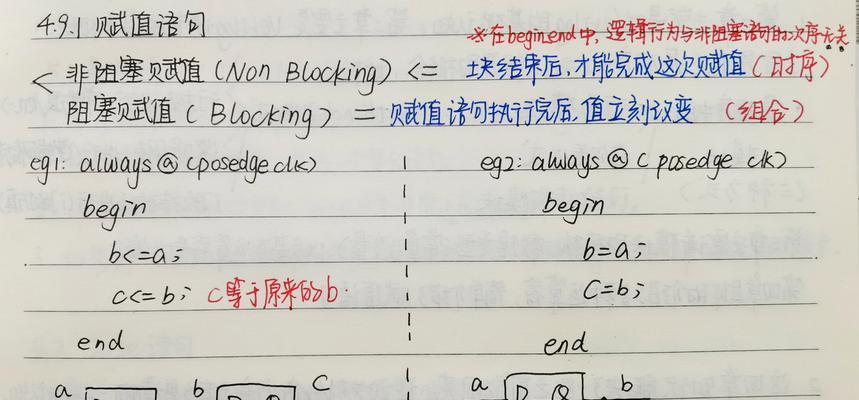 4.9.1 赋值语句
※在begin end中，逻辑行为与非阻塞语句的次序无关
< 非阻塞赋值(Non Blocking) <= 块结果后，才能完成这次赋值(时序)
阻塞赋值(Blocking) = 赋值语句执行完后，值立刻改变 (组合)
eg1: always @ (posedge clk)
begin
b<=a;
c<=b; c等于原来的b.
end
a b C
D Q
eg2: always @ (posedge clk)
begin
b=a;
C=b;
end
a b
D Q